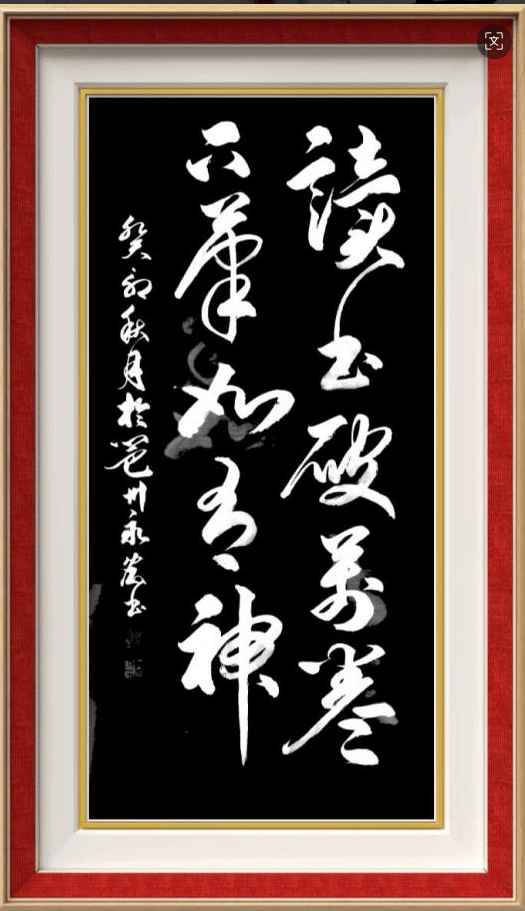 讀書破萬卷
下筆如有神
癸卯秋月於邕州永書